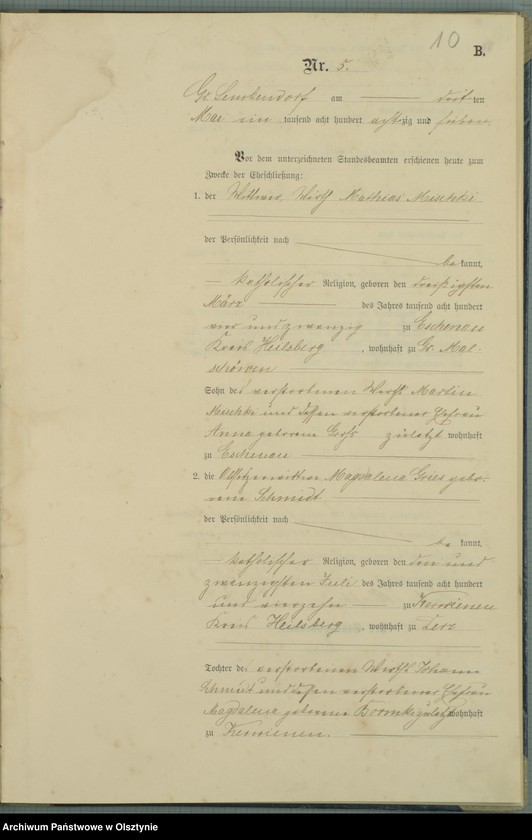 10
B.
Nr. 5.
Gr. Lemkendorf am dritten
Mai ein tausend acht hundert achtzig und sieben
Vor dem unterzeichneten Standesbeamten erschienen heute zum
Zwecke der Eheschließung:
1. der Wittwer, Wirth Mathias
der Persönlichkeit nach
be kannt,
katholischer Religion, geboren den dreißigsten
März des Jahres tausend acht hundert
vier und zwanzig zu Eschenau
Kreis Heilsberg, wohnhaft zu Gr. Mal-
Sohn des verstorbenen Wirth Martin
und dessen verstorbener Ehefrau
Anna geborene zuletzt wohnhaft
zu Eschenau
2. die Magdalena gebo-
rene Schmidt
der Persönlichkeit nach
be kannt,
katholischer Religion, geboren den und
zwanzigsten Juli des Jahres tausend acht hundert
und vierzehn zu Kerwienen
Kreis Heilsberg, wohnhaft zu
Tochter des verstorbenen Wirth Johann
Schmidt und dessen verstorbener Ehefrau
Magdalena geborene zuletzt wohnhaft
zu Kerwienen.
Archiwum Państwowe w Olsztynie